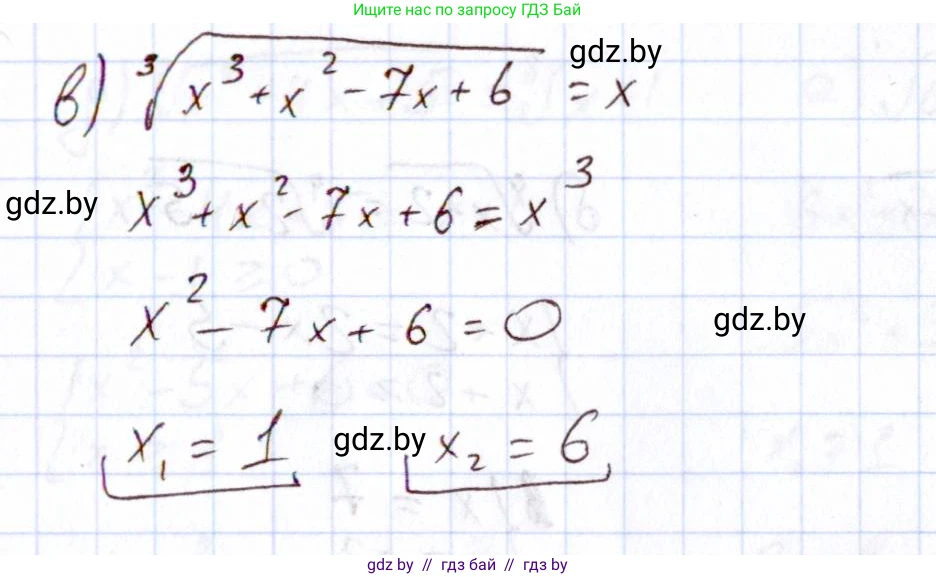 Ищите нас по запросу ГДЗ Бай
gdz.by
в) ∛(x³ + x² - 7x + 6) = x
gdz.by
x³ + x² - 7x + 6 = x³
x² - 7x + 6 = 0
gdz.by
x₁ = 1 gdz.by x₂ = 6
gdz.by // гдз бай // гдз by